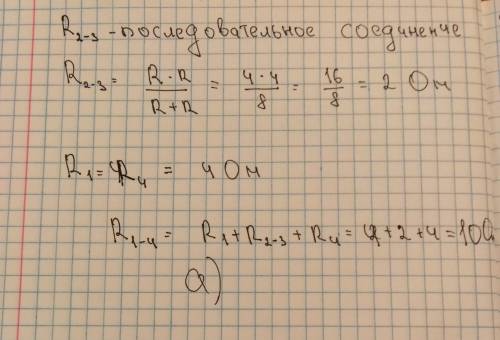 R₂₋₃ - последовательное соединение
R₂₋₃ = R·R/R+R = 4·4/8 = 16/8 = 2 Ом
R₁ = R₄ = 4 Ом
R₁₋₄ = R₁ + R₂₋₃ + R₄ = 4 + 2 + 4 = 10 О
а)